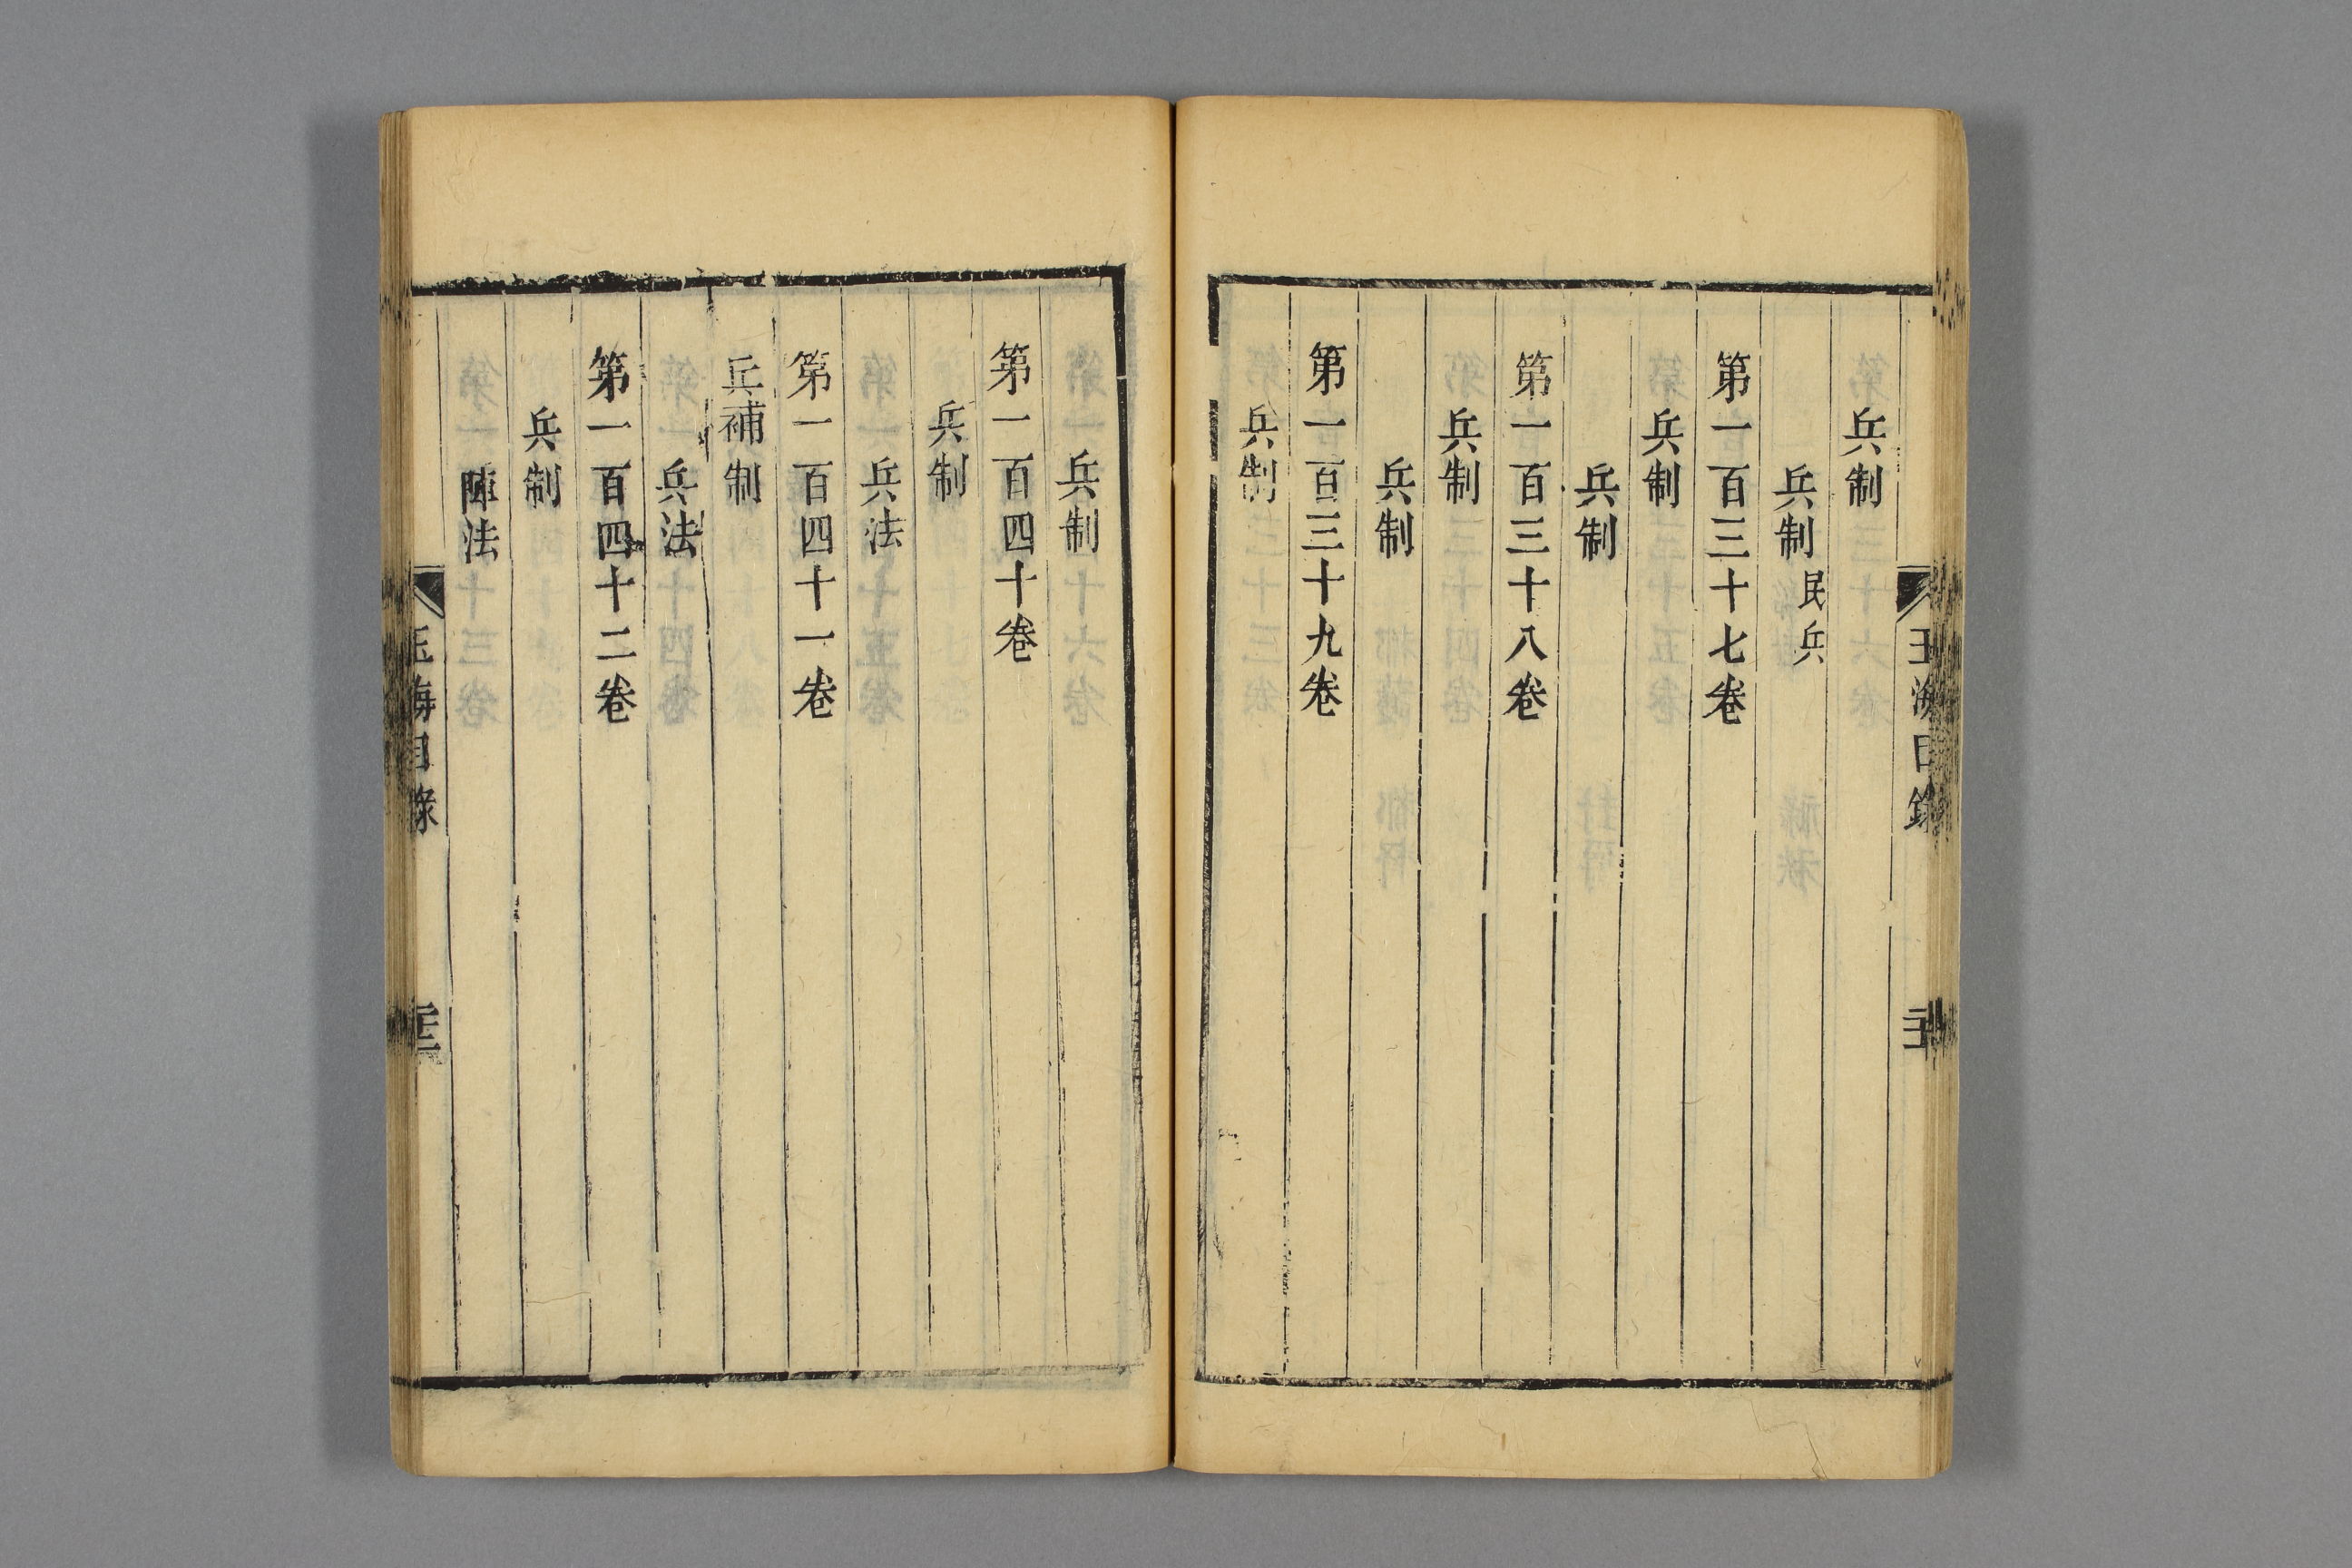 兵制
兵制民兵
第一百三十七卷
兵制
兵制
第一百三十八卷
兵制
兵制
第一百三十九卷
兵制
兵制
第一百四十卷
兵制
兵法
第一百四十一卷
兵補制
兵法
第一百四十二卷
兵制
陣法
玉海目錄